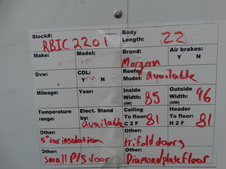 Stock#: RBIC2201
Body Length: 22
Make: Model:
Brand: Morgan
Air brakes? Y N
Gvw: CDL: Y N
Reefer Model: available
Mileage: Year:
Inside Width: 85
Outside Width: 96
Temperature range:
Elect. Stand by: available
Ceiling To floor: 81
Header To floor: 81
Other: 5" air insulation
Other: trifold doors
Other: Small P/S door
Other: Diamond plate floor